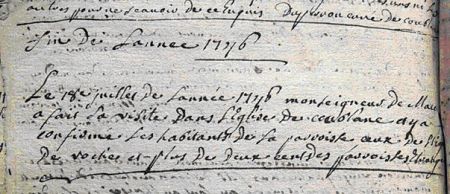 pour ne scavoir de ce enquis Dupuy curé de coubl
fin De Lannee 1776
Le 18e juillet de Lannée 1776 monseigneur de Mac
a fait La visite Dans Leglise de coublane ay a
confirmé Les habitants de La paroisse ceux de
de roches et plus de deux cent des paroisses